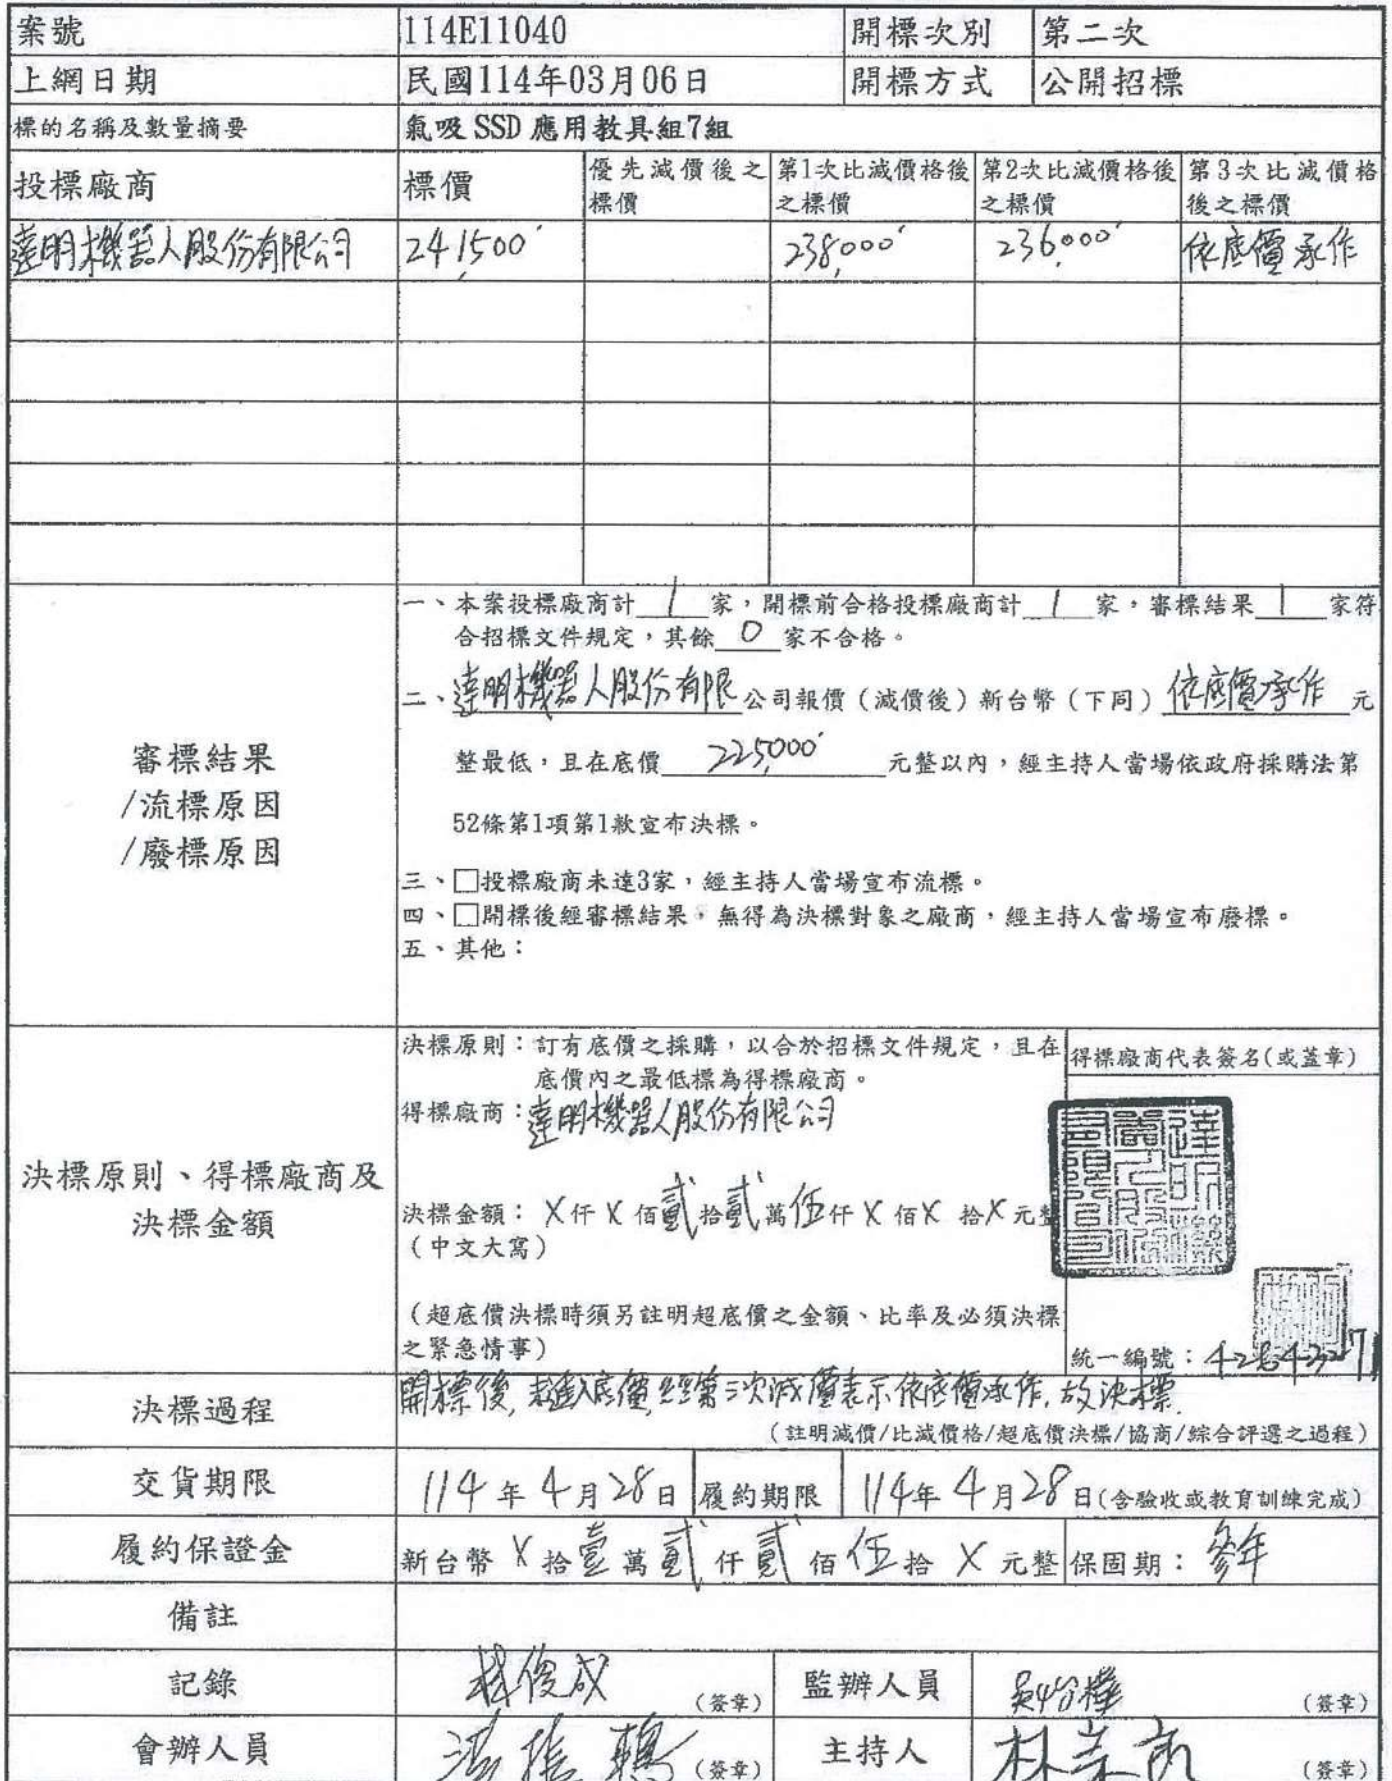 案號 114E11040 開標次別 第二次
上網日期 民國114年03月06日 開標方式 公開招標
標的名稱及數量摘要 氣吸 SSD 應用教具組7組
投標廠商 標價 優先減價後之標價 第1次比減價格後之標價 第2次比減價格後之標價 第3次比減價格後之標價
達明機器人股份有限公司 241,500 238,000 236,000 依底價承作
一、本案投標廠商計 1 家,開標前合格投標廠商計 1 家,審標結果 1 家符
合招標文件規定,其餘 0 家不合格。
二、達明機器人股份有限公司報價(減價後)新台幣(下同)依底價承作 元
整最低,且在底價 225,000 元整以內,經主持人當場依政府採購法第
52條第1項第1款宣布決標。
審標結果
/流標原因
/廢標原因
三、□投標廠商未達3家,經主持人當場宣布流標。
四、□開標後經審標結果,無得為決標對象之廠商,經主持人當場宣布廢標。
五、其他:
決標原則、得標廠商及
決標金額
決標原則:訂有底價之採購,以合於招標文件規定,且在
底價內之最低標為得標廠商。
得標廠商:達明機器人股份有限公司
決標金額:X仟X佰貳拾貳萬伍仟X佰X拾X元整
(中文大寫)
(超底價決標時須另註明超底價之金額、比率及必須決標
之緊急情事)
得標廠商代表簽名(或蓋章)
統一編號:
決標過程 開標後,未進入底價,經第三次減價表示依底價承作,故決標.
(註明減價/比減價格/超底價決標/協商/綜合評選之過程)
交貨期限 114年4月28日 履約期限 114年4月28日(含驗收或教育訓練完成)
履約保證金 新台幣X拾壹萬貳仟貳佰伍拾X元整 保固期:參年
備註
記錄 林俊成 (簽章) 監辦人員 (簽章)
會辦人員 (簽章) 主持人 (簽章)